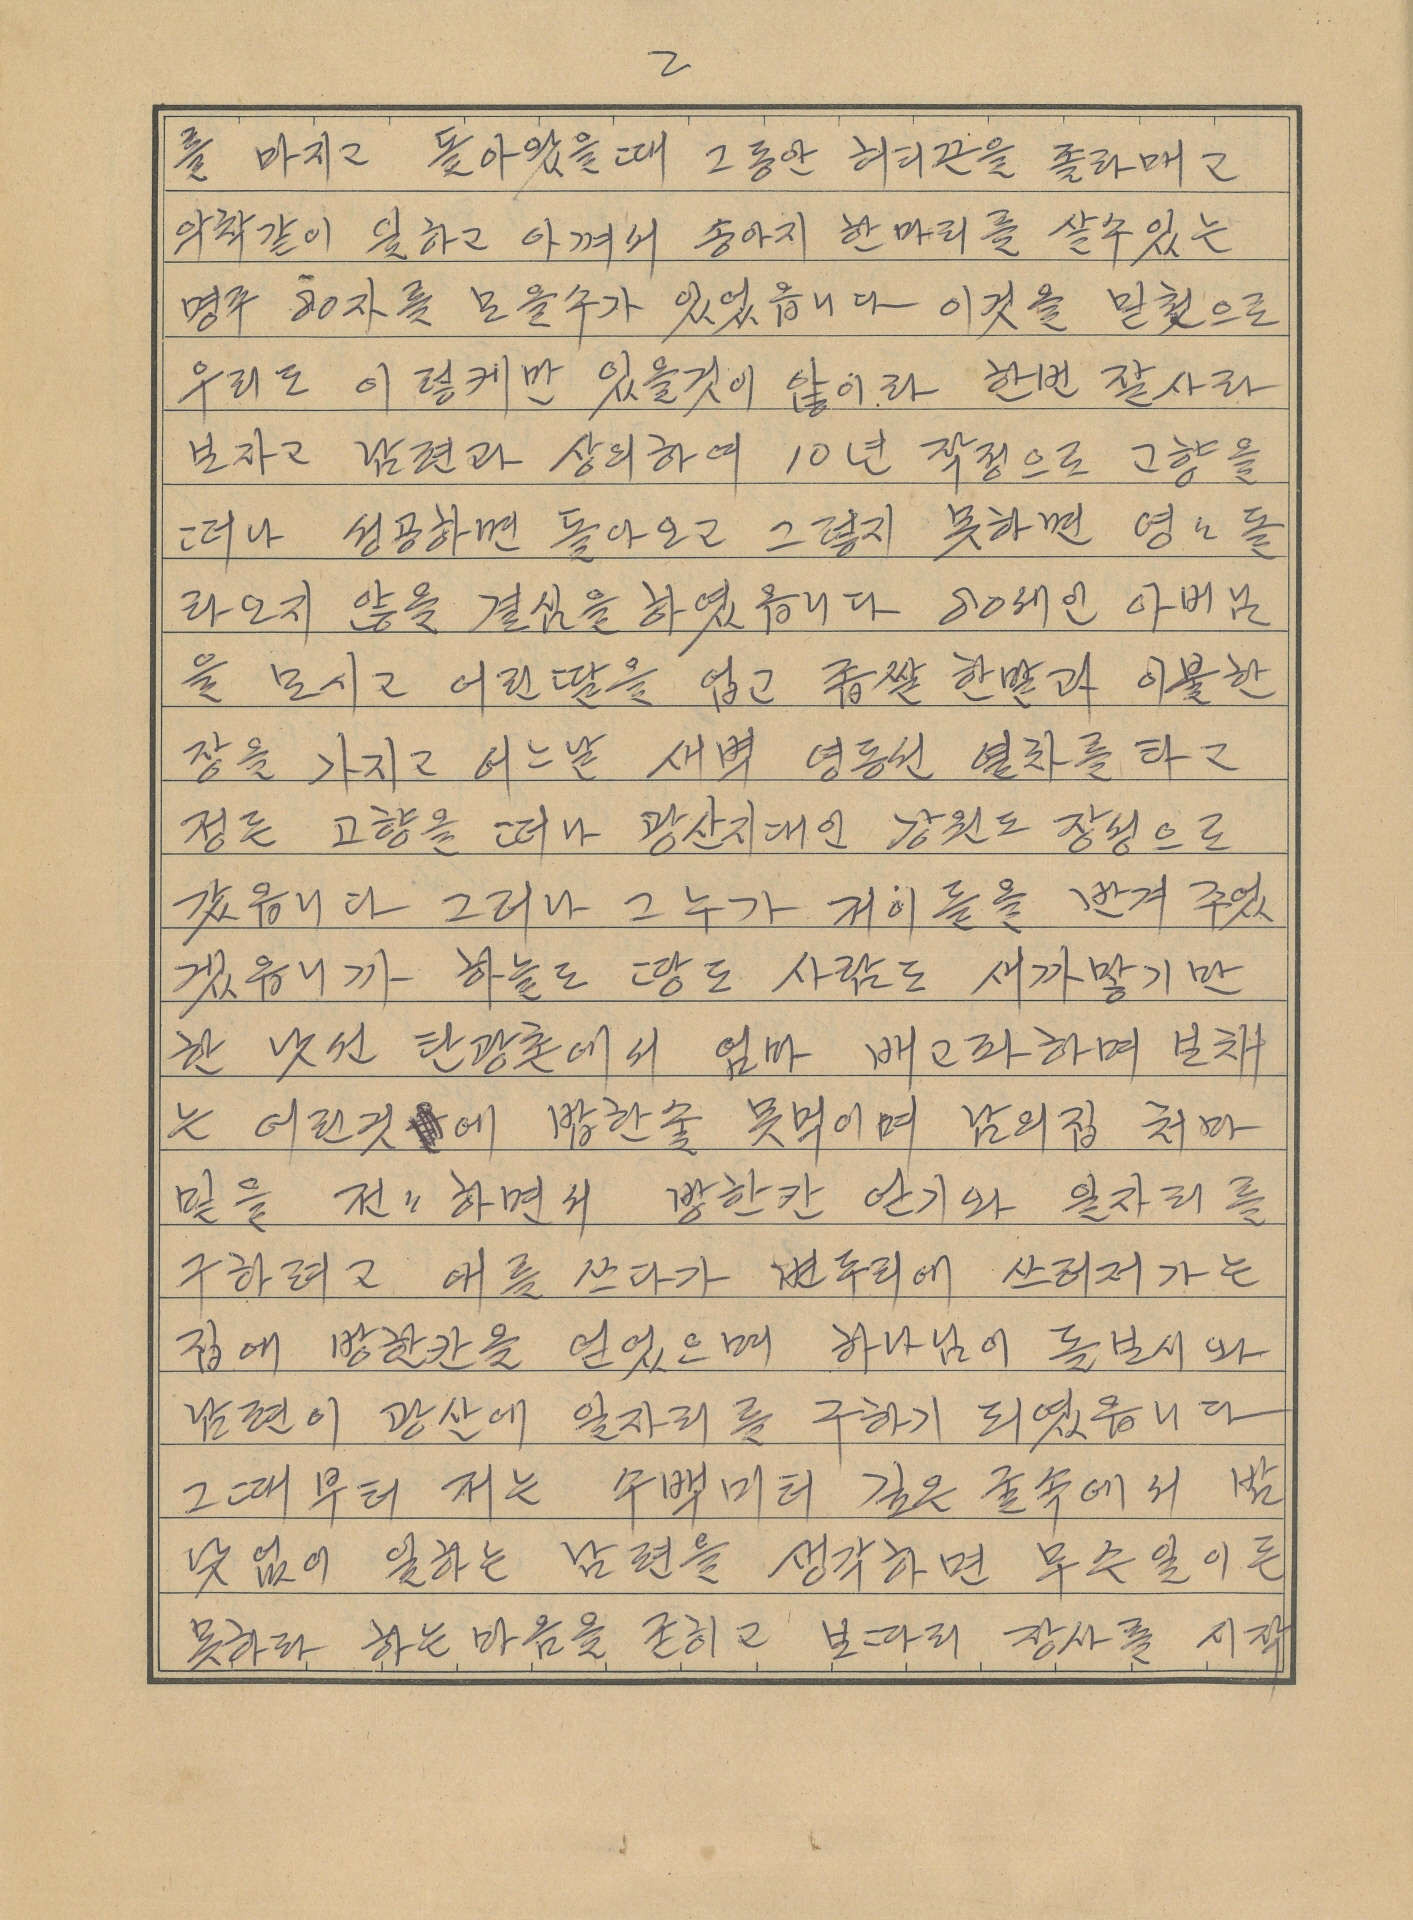 2
를 마치고 돌아왔을때 그동안 허리끈을 졸라매고
악착같이 일하고 아껴서 송아지 한마리를 살수있는
명주 80자를 모을수가 있었읍니다 이것을 밑천으로
우리도 이렇케만 있을것이 않이라 한번 잘사라
보자고 남편과 상의하여 10년 작정으로 고향을
떠나 성공하면 돌아오고 그렇지 못하면 영〃 돌
라오지 않을 결심을 하였읍니다 80세인 아버님
을 모시고 어린딸을 업고 좁쌀 한말과 이불한
장을 가지고 어느날 새벽 영동선 열차를 타고
정든 고향을 떠나 광산지대인 강원도 장성으로
갔읍니다 그러나 그 누가 저이들을 반겨 주었
겠읍니까 하늘도 땅도 사람도 새까맣기만
한 낫선 탄광촌에서 엄마 배고파하며 보채
는 어린것에 밥한술 못먹이며 남의집 처마
밑을 전〃하면서 방한칸 얻기와 일자리를
구하려고 애를 쓰다가 변두리에 쓰러저가는
집에 방한칸을 얻었으며 하나님이 돌보시와
남편이 광산에 일자리를 구하기 되였읍니다
그때부터 저는 수백미터 깊은 굴속에서 밤
낫없이 일하는 남편을 생각하면 무슨일이든
못하랴 하는마음을 굳히고 보따리 장사를 시작